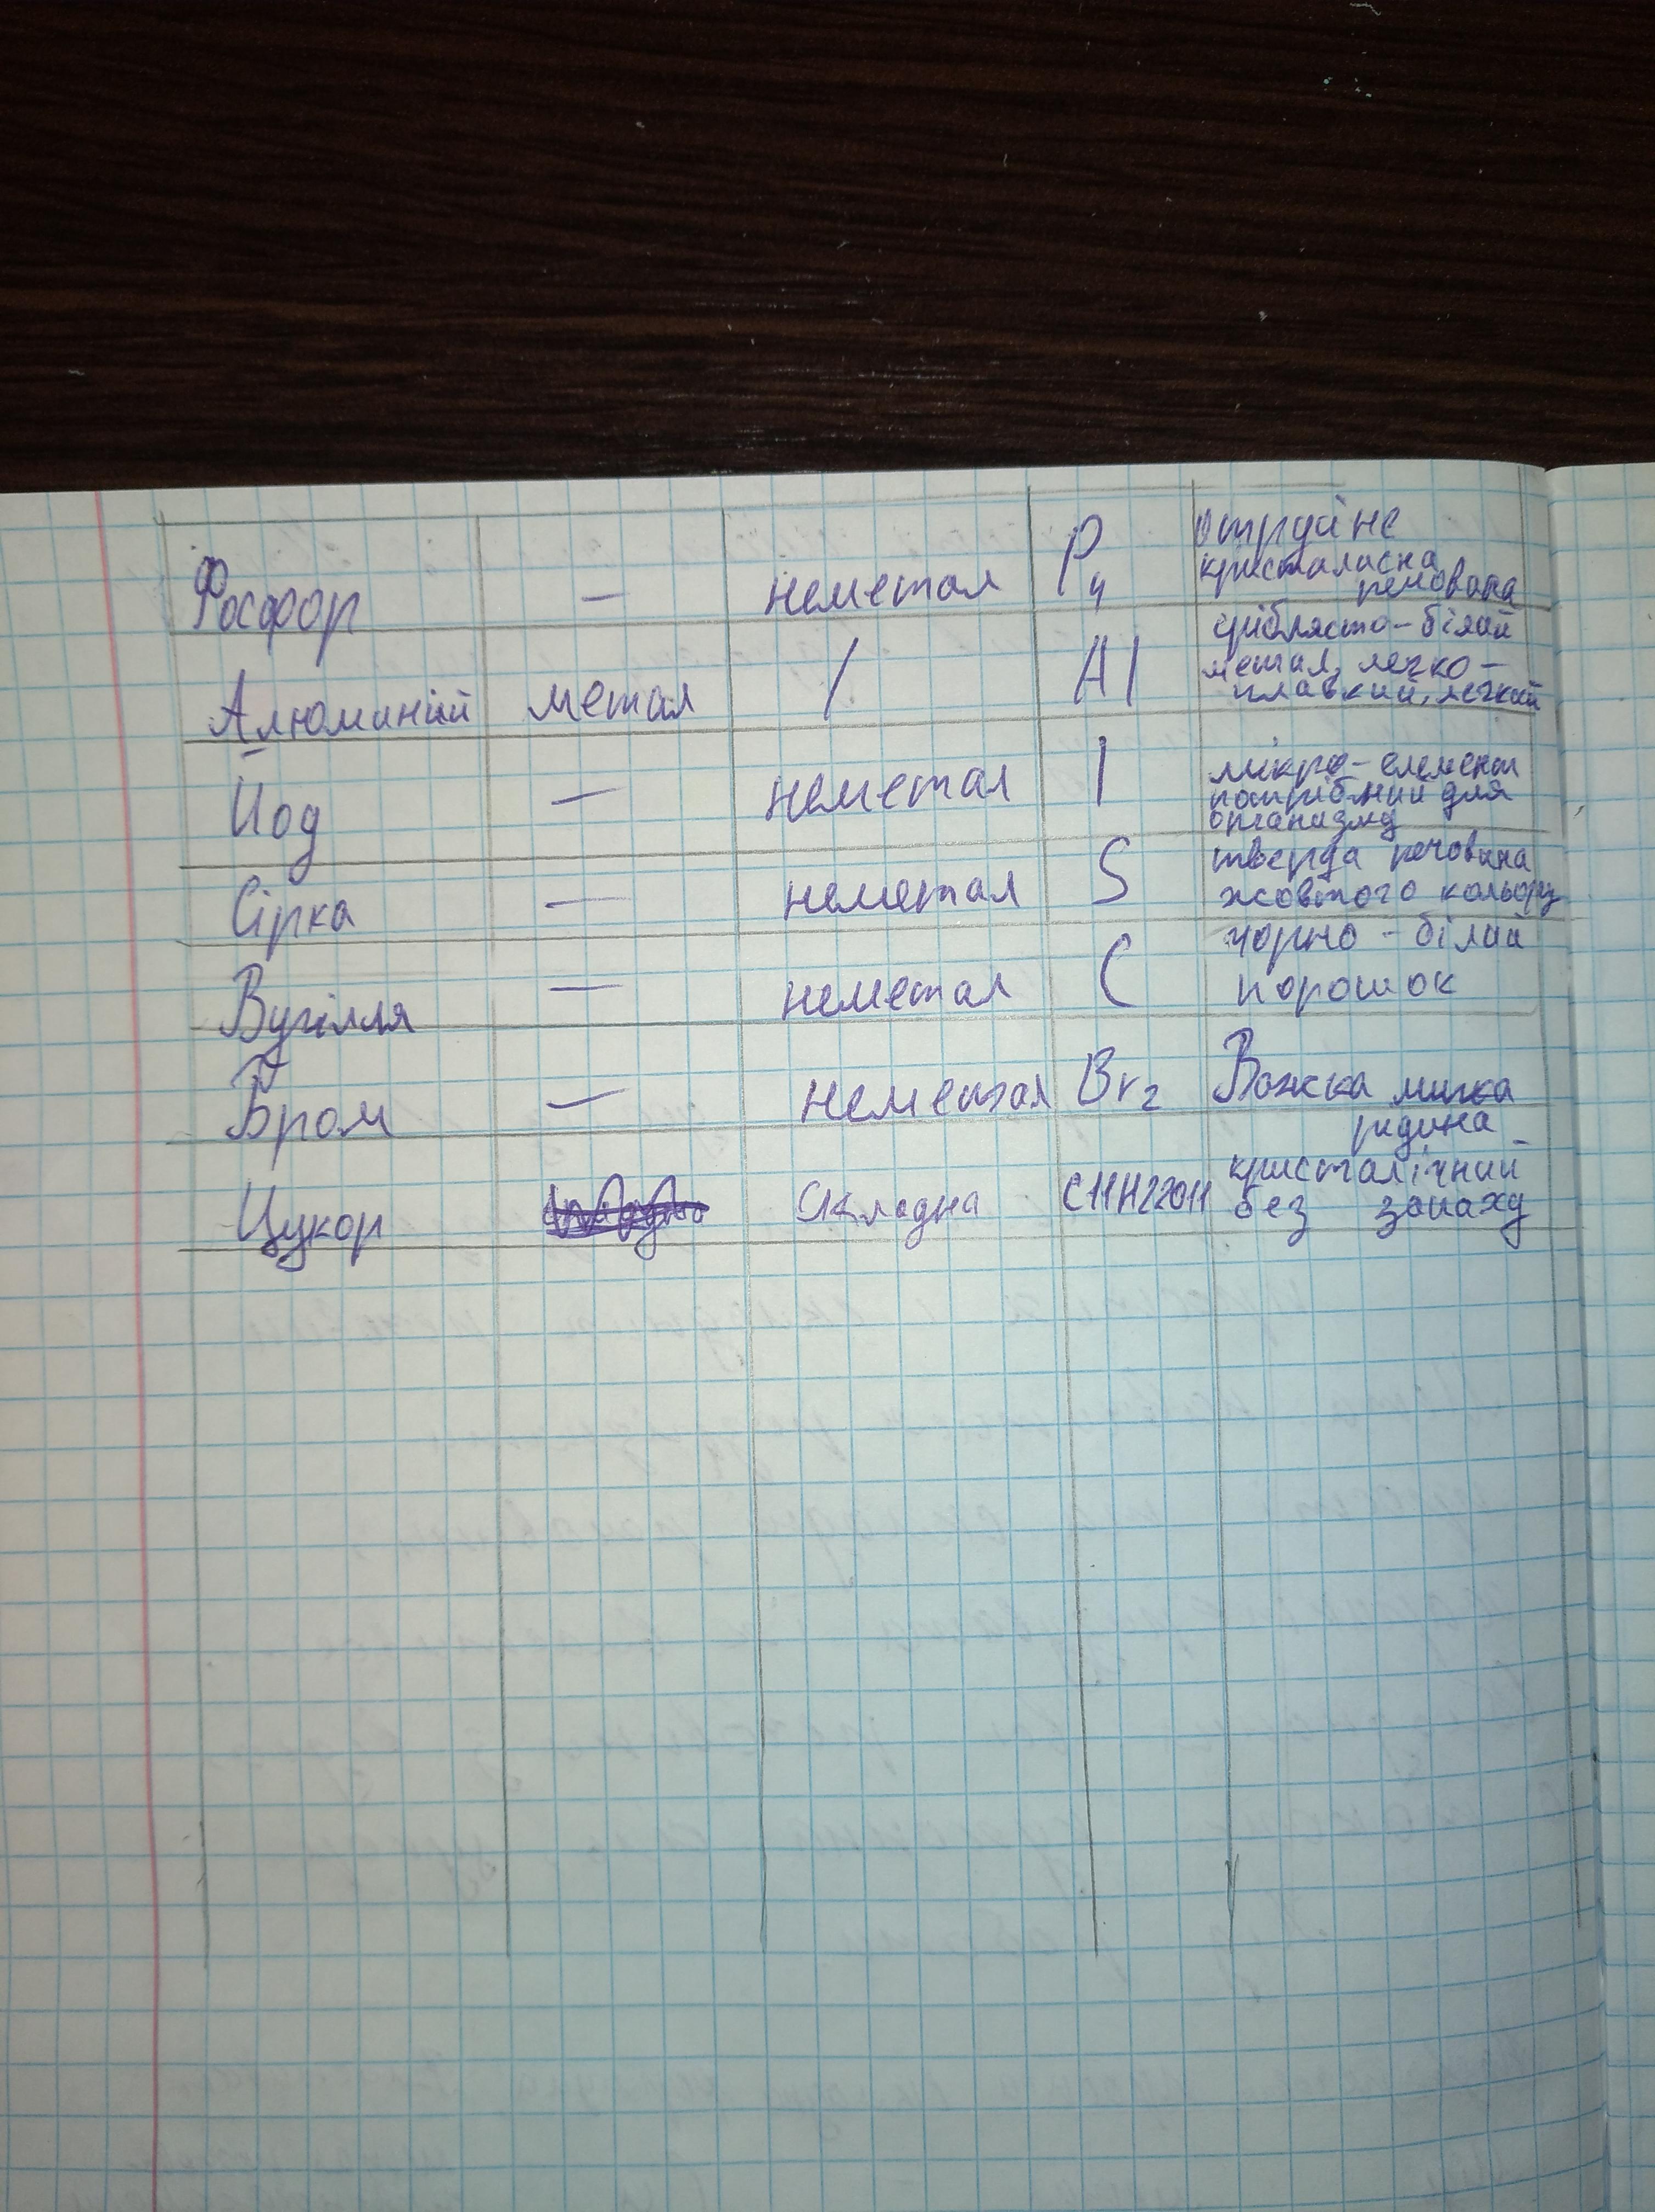 Фосфор — неметал P4 отруйне
кристаласна
речовина
Алюминій метал / Al сріблясто-білий
метал, легко-
плавкий, легкий
Йод — неметал I мікро-елемент
потрібний для
організму
Сірка — неметал S тверда речовина
жовтого кольору
Вугілля — неметал C чорно-білий
порошок
Бром — неметал Br2 Важка
рідина
Цукор Складна C11H22O11 кристалічний
без запаху